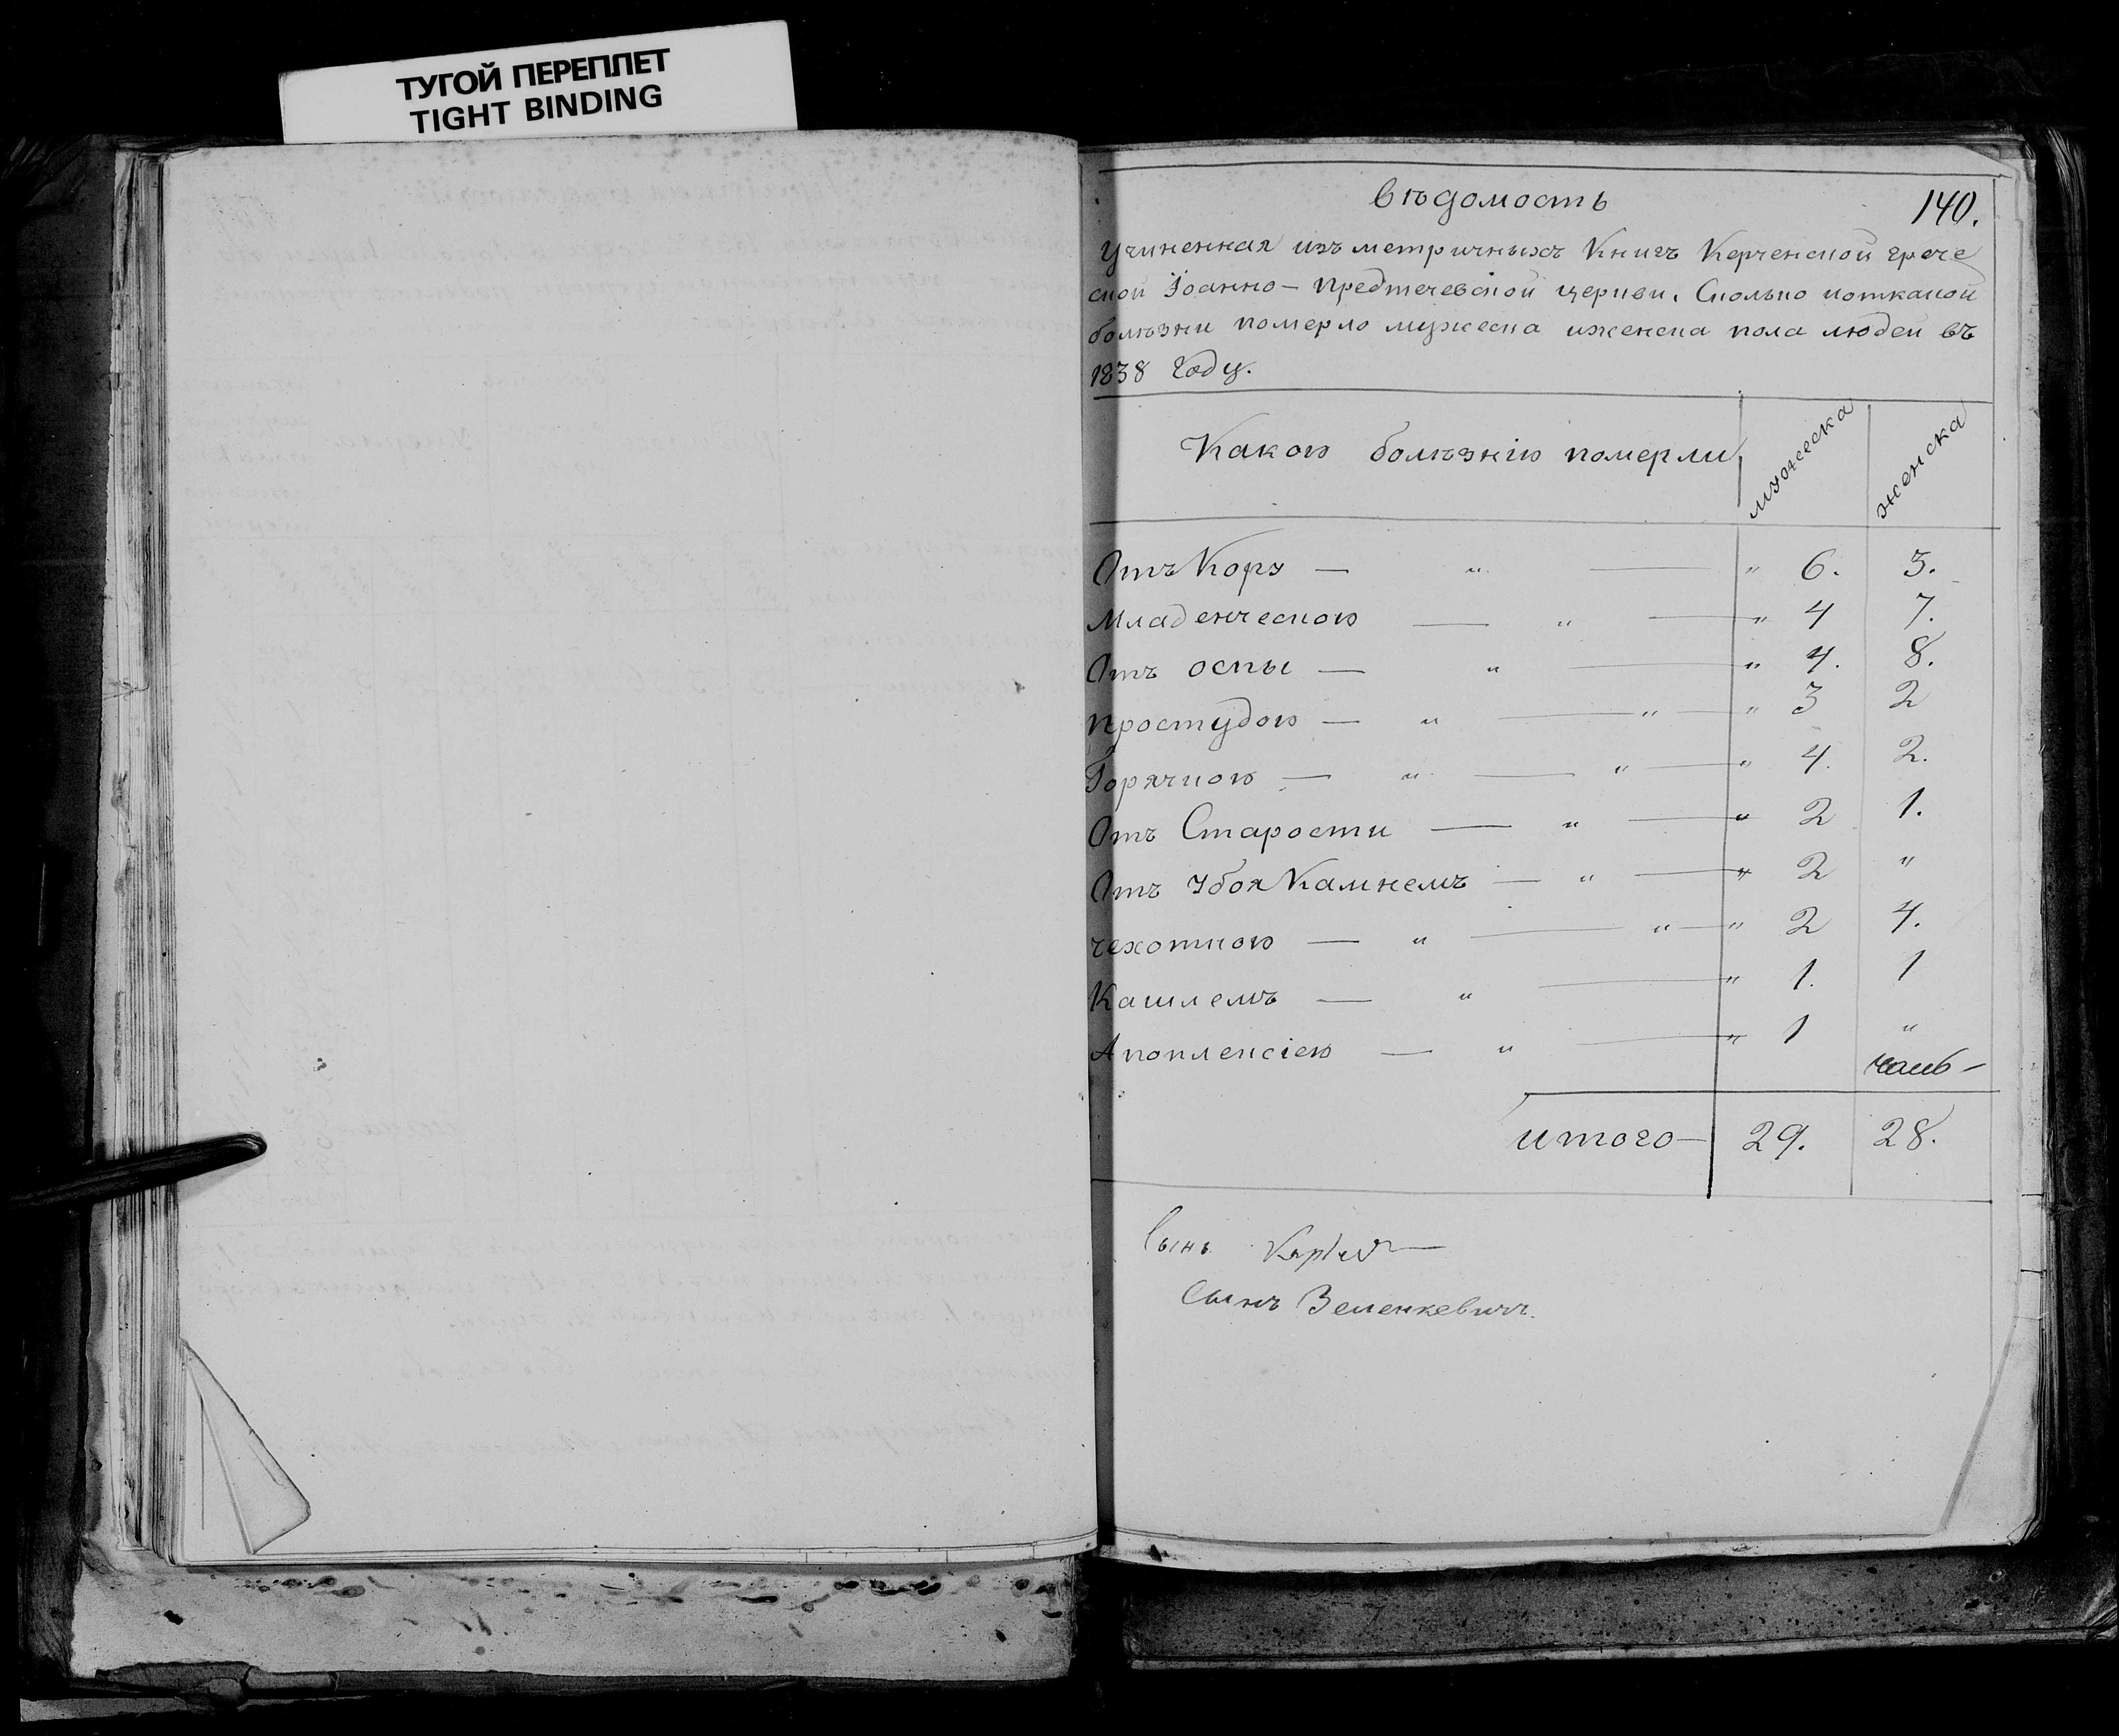 ТУГОЙ ПЕРЕПЛЕТ
TIGHT BINDING
Вѣдомость
140.
Учиненная изъ метричныхъ Книгъ Керченской грече
ской Іоанно-Предтечевской церкви. Сколько поткакой
болѣзни померло мужеска иженска пола людей въ
1838 Году.
Какою болѣзнію померли мужеска женска
Отъ Кору — " — " 6. 3.
Младенческою — " — " 4 7.
Отъ оспы — " — " 4. 8.
Простудою — " — " — " 3 2
Горячкою — " — " — " 4. 2.
Отъ Старости — " — " 2 1.
Отъ Убоя Камнемъ — " — " 2 "
чехоткою — " — " — " 2 4.
Кашлемъ — " — " 1. 1
Апоплексіею — " — " 1 "
итого — 29. 28.
Сынъ Зеленкевичъ.